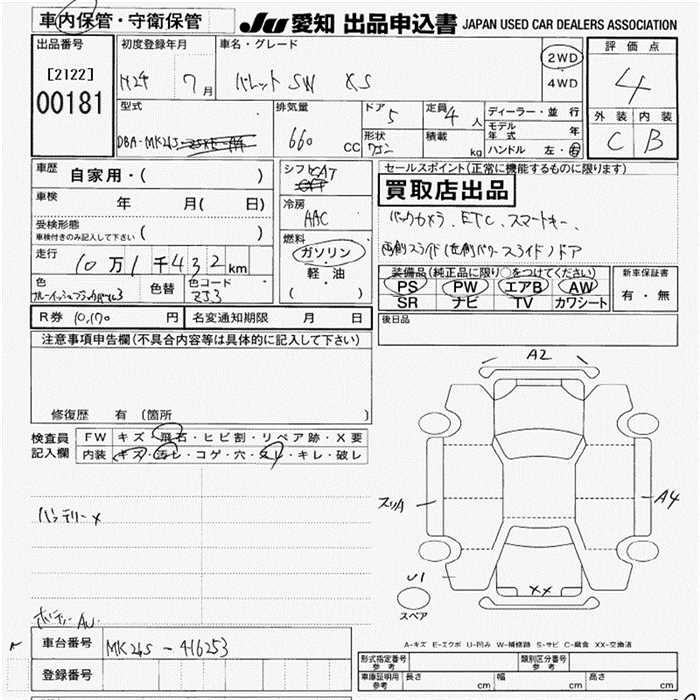 車内保管・守衛保管
JU 愛知 出品申込書 JAPAN USED CAR DEALERS ASSOCIATION
出品番号
[2122]
00181
初度登録年月
H24 7月
車名・グレード
パレット SW XS
2WD
4WD
評価点
4
外装 内装
C B
型式
DBA-MK21S
排気量
660 CC
ドア 5
形状
定員 4人
積載 kg
ディーラー・並行
モデル年式 年
ハンドル 左・右
車歴
自家用・( )
車検
年 月( 日)
受検形態
車検付きのみ記入して下さい ( )
走行
10万1千432km
色
ブルーイッシュブラックパール3
色替
色コード
ZJ3
シフト
AT
冷房
AAC
燃料
ガソリン
軽・油
( )
セールスポイント(正常に機能するものに限ります)
買取店出品
バックカメラ、ETC、スマートキー、
両側スライド(左側パワースライド)ドア
装備品(純正品に限り○をつけてください)
PS PW エアB AW
SR ナビ TV カワシート
新車保証書
有・無
R券 10,170 円
名変通知期限 月 日
後日品
注意事項申告欄(不具合内容等は具体的に記入して下さい)
修復歴 有 (箇所 )
検査員記入欄
FW キズ・飛石・ヒビ割・リペア跡・X要
内装 キズ・汚レ・コゲ・穴・スレ・キレ・破レ
バッテリー×
ボディー AU
車台番号 MK21S-416253
登録番号
A2
スリA
A4
U1
××
スペア
A-キズ E-エクボ U-凹み W-補修跡 S-サビ C-腐食 XX-交換済
形式指定番号 参考
類別区分番号 参考
車庫証明用 参考 長さ cm 幅 cm 高さ cm